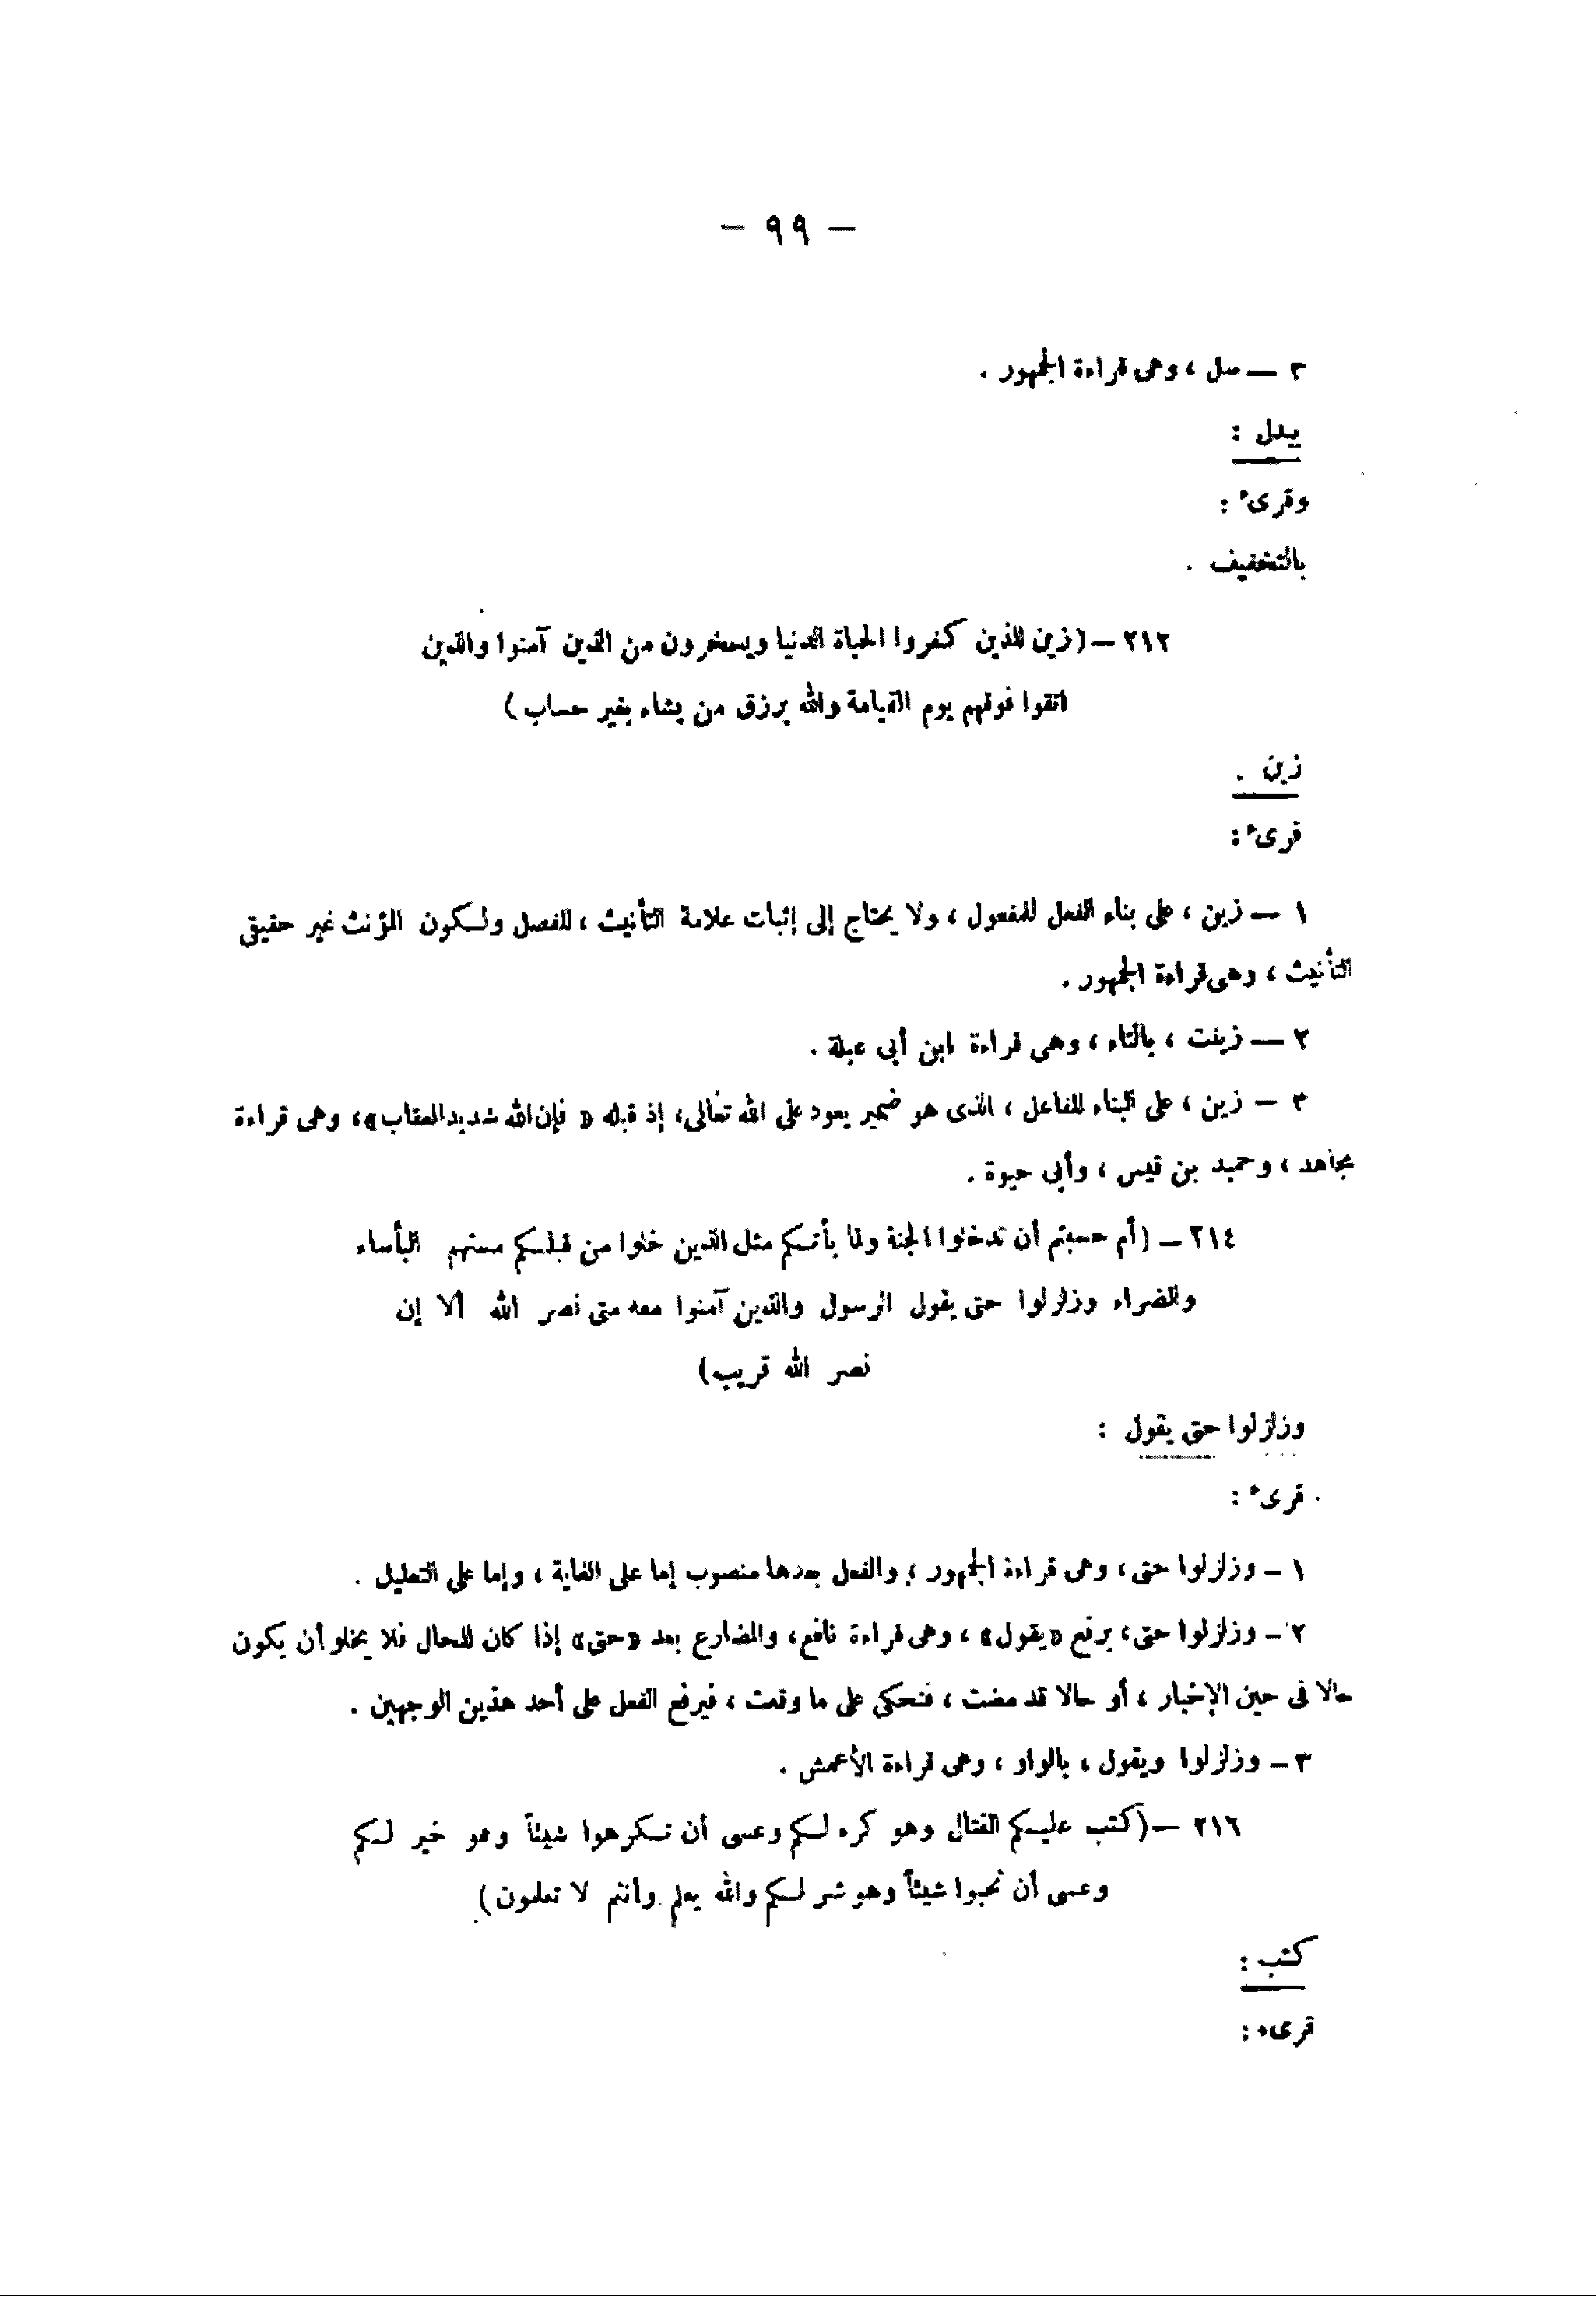 — ٩٩ —
٣ — سل ، وهى قراءة الجمهور .
يبدل :
وقرىء :
بالتخفيف .
٢١٢ — (زين للذين كفروا الحياة الدنيا ويسخرون من الذين آمنوا والذين
اتقوا فوقهم يوم القيامة والله يرزق من يشاء بغير حساب )
زين .
قرىء :
١ — زين ، على بناء الفعل للمفعول ، ولا يحتاج إلى إثبات علامة التأنيث ، للفصل ولكون المؤنث غير حقيقى
التأنيث ، وهى قراءة الجمهور .
٢ — زينت ، بالتاء ، وهى قراءة ابن أبى عبلة .
٣ — زين ، على البناء للفاعل ، الذى هو ضمير يعود على الله تعالى، إذ قبله « فإن الله شديد العقاب»، وهى قراءة
مجاهد ، وحميد بن قيس ، وأبى حيوة .
٢١٤ — (أم حسبتم أن تدخلوا الجنة ولما يأتكم مثل الذين خلوا من قبلكم مستهم البأساء
والضراء وزلزلوا حتى يقول الرسول والذين آمنوا معه متى نصر الله ألا إن
نصر الله قريب)
وزلزلوا حتى يقول :
قرىء :
١ — وزلزلوا حتى، وهى قراءة الجمهور ، والفعل بعدها منصوب إما على الغاية ، وإما على التعليل .
٢ — وزلزلوا حتى، برفع «يقول» ، وهى قراءة نافع، والمضارع بعد «حتى» إذا كان للحال فلا يخلو أن يكون
حالا فى حين الإخبار ، أو حالا قد مضت ، فتحكى على ما وقعت ، فيرفع الفعل على أحد هذين الوجهين .
٣ — وزلزلوا ويقول ، بالواو ، وهى قراءة الأعمش .
٢١٦ — (كتب عليكم القتال وهو كره لكم وعسى أن تكرهوا شيئاً وهو خير لكم
وعسى أن تحبوا شيئاً وهو شر لكم والله يعلم وأنتم لا تعلمون)
كتب :
قرىء :